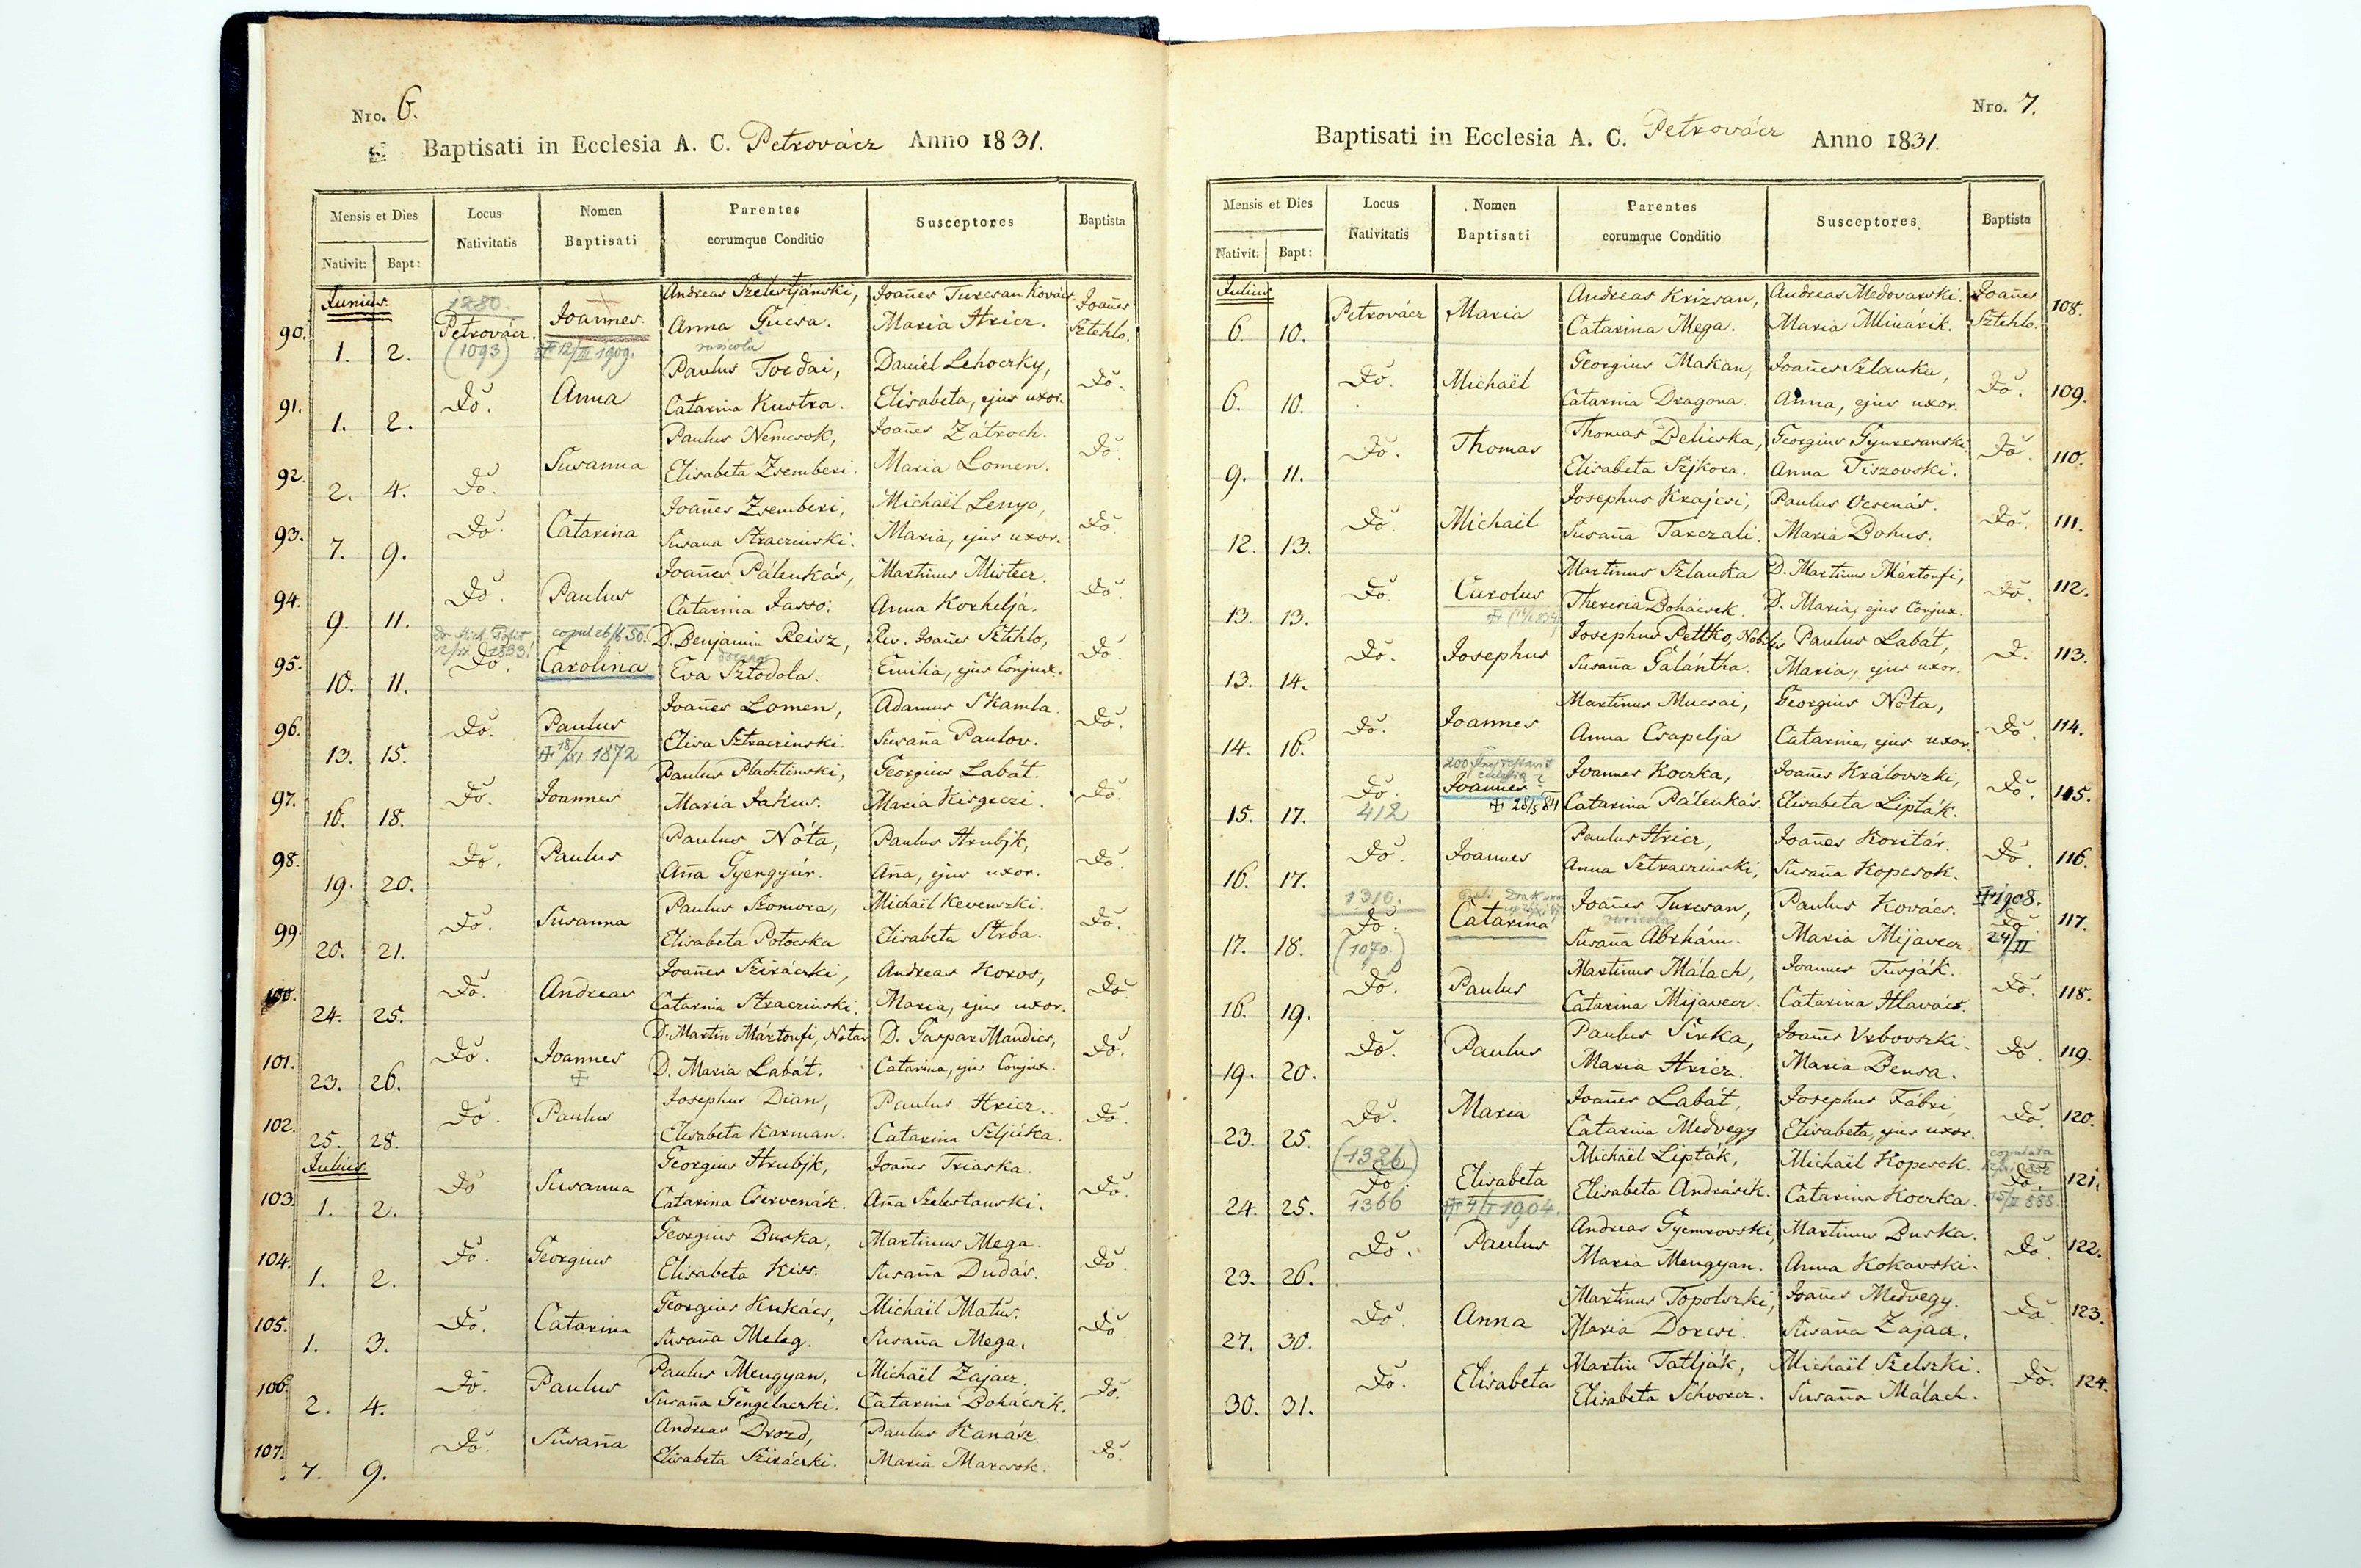 Nro. 6.
Baptisati in Ecclesia A. C. Petrovácz Anno 1831.
Mensis et Dies Locus Nativitatis Nomen Baptisati Parentes eorumque Conditio Susceptores Baptista
Nativit: Bapt:
Junius.
1280. Andreas Szelestjánski, Joañes Turcsan Kovács. Joañes
90. 1. 2. Petrovácz. Joannes. Anna Gucsa. Maria Hricz. Sztehlo.
(1093) 12/III 1909. ruricola
Paulus Tordai, Daniel Lehoczky,
91. 1. 2. Do. Anna Catarina Kustra. Elisabeta, ejus uxor. Do.
Paulus Nemcsok, Joañes Zátroch.
92. 2. 4. Do. Susanna Elisabeta Zsemberi. Maria Lomen. Do.
Joañes Zsemberi, Michaël Lenyo,
93. 7. 9. Do. Catarina Susana Straczinski. Maria, ejus uxor. Do.
Joañes Pálenkás, Martinus Mistecz.
94. 9. 11. Do. Paulus Catarina Jasso. Anna Korhelja. Do.
copul 26/6 50. D. Benjamin Reisz, Rev. Joañes Sztehlo,
95. 10. 11. Do. Carolina Eva Sztodola. Emilia, ejus Conjux. Do.
Joañes Lomen, Adamus Skamla.
96. 13. 15. Do. Paulus Elisa Sztraczinski. Susaña Paulov. Do.
18/XI 1872
Paulus Plachtinski, Georgius Labát.
97. 16. 18. Do. Joannes Maria Jakus. Maria Kisgeczi. Do.
Paulus Nóta, Paulus Hrubjk,
98. 19. 20. Do. Paulus Aña Gyengyúr. Aña, ejus uxor. Do.
Paulus Szomora, Michaël Kevenszki.
99. 20. 21. Do. Susanna Elisabeta Potocska Elisabeta Strba. Do.
Joañes Sziráczki, Andreas Koros,
100. 24. 25. Do. Andreas Catarina Straczinski. Maria, ejus uxor. Do.
D. Martin Mártonfi, Notar. D. Gaspar Mandics,
101. 23. 26. Do. Joannes D. Maria Labát. Catarina, ejus Conjux. Do.
Josephus Dian, Paulus Hricz.
102. 25. 28. Do. Paulus Elisabeta Karman. Catarina Szljúka. Do.
Julius.
Georgius Hrubjk, Joañes Triaska.
103. 1. 2. Do Susanna Catarina Cservenák. Aña Szelestanski. Do.
Georgius Buska, Martinus Mega.
104. 1. 2. Do. Georgius Elisabeta Kiss. Susaña Dudás. Do.
Georgius Kukács, Michaël Matús.
105. 1. 3. Do. Catarina Susaña Meleg. Susaña Mega. Do
Paulus Mengyan, Michaël Zajacz.
106. 2. 4. Do. Paulus Susaña Gengelaczki. Catarina Bohácsik. Do.
Andreas Drozd, Paulus Kanász.
107. 7. 9. Do. Susaña Elisabeta Sziráczki. Maria Marcsok. Do.
Nro. 7.
Baptisati in Ecclesia A. C. Petrovácz Anno 1831.
Mensis et Dies Locus Nativitatis Nomen Baptisati Parentes eorumque Conditio Susceptores. Baptista
Nativit: Bapt:
Julius
Andreas Krizsan, Andreas Medovarski. Joañes
6. 10. Petrovácz Maria Catarina Mega. Maria Mlinárik. Sztehlo. 108.
Georgius Makan, Joañes Szlauka,
6. 10. Do. Michaël Catarnia Dragona. Anna, ejus uxor. Do. 109.
Thomas Belicska, Georgius Gyurcsanski.
9. 11. Do. Thomas Elisabeta Szjkora. Anna Tiszovski. Do. 110.
Josephus Krajcsi, Paulus Ocsenás.
12. 13. Do. Michaël Susaña Tarczali. Maria Bohus. Do. 111.
Martinus Szlauka D. Martinus Mártonfi,
13. 13. Do. Carolus Theresia Bohácsek. D. Maria, ejus Conjux. Do. 112.
Josephus Pettko, Nobilis Paulus Labát,
13. 14. Do. Josephus Susaña Galántha. Maria, ejus uxor. D. 113.
Martinus Mucsai, Georgius Nóta,
14. 16. Do. Joannes Anna Csapelja Catarina, ejus uxor. Do. 114.
Joannes Koczka, Joañes Královszki,
15. 17. Do. Joannes Catarina Pálenkás. Elisabeta Lipták. Do. 115.
412 28/5 84
Paulus Hricz, Joañes Koritár.
16. 17. Do. Joannes Anna Sztraczinski, Susaña Kopcsok. Do. 116.
1310. Joañes Turcsan, Paulus Kovács. 1908.
17. 18. Do. Catarina Susaña Abrhám. Maria Mijavecz Do. 117.
(1070) ruricola 24/II
Martinus Málach, Joannes Turják.
16. 19. Do. Paulus Catarina Mijavecz. Catarina Hlavács. Do. 118.
Paulus Sirka, Joañes Vrbovszki.
19. 20. Do. Paulus Maria Hricz. Maria Bensa. Do. 119.
Joañes Labát, Josephus Fábri,
23. 25. Do. Maria Catarina Medvegy Elisabeta, ejus uxor. Do. 120.
(1326) Michaël Lipták, Michaël Kopcsok. copulata
24. 25. Do. Elisabeta Elisabeta Andrásik. Catarina Koczka. Do. 121.
1366 4/I 1904.
Andreas Gyemrovski, Martinus Buska.
23. 26. Do. Paulus Maria Mengyan. Anna Kokavski. Do. 122.
Martinus Topolszki, Joañes Medvegy.
27. 30. Do. Anna Maria Dorcsi. Susaña Zajacz. Do. 123.
Martin Tatlják, Michaël Szelszki.
30. 31. Do. Elisabeta Elisabeta Schvorcz. Susaña Málach. Do. 124.